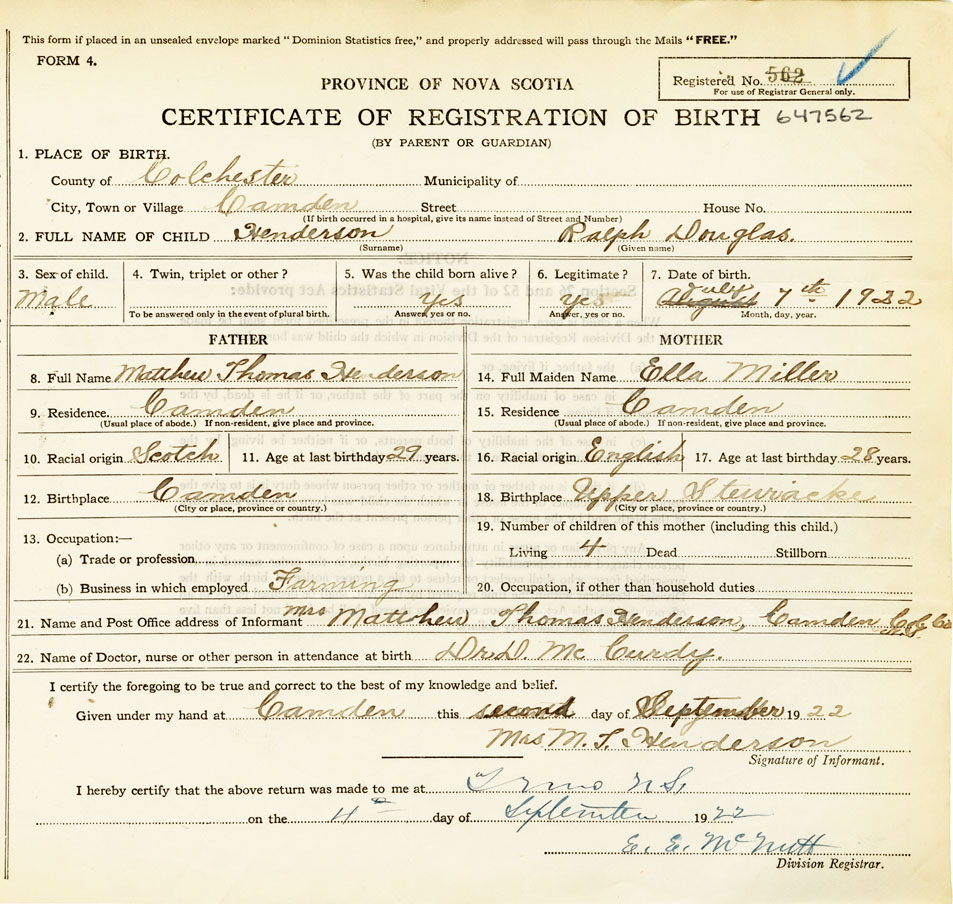 This form if placed in an unsealed envelope marked "Dominion Statistics free," and properly addressed will pass through the Mails "FREE."
FORM 4.
Registered No. 562
For use of Registrar General only.
PROVINCE OF NOVA SCOTIA
CERTIFICATE OF REGISTRATION OF BIRTH 647562
(BY PARENT OR GUARDIAN)
1. PLACE OF BIRTH.
County of Colchester Municipality of
City, Town or Village Camden Street House No.
(If birth occurred in a hospital, give its name instead of Street and Number)
2. FULL NAME OF CHILD Henderson Ralph Douglas.
(Surname) (Given name)
3. Sex of child. 4. Twin, triplet or other? 5. Was the child born alive? 6. Legitimate? 7. Date of birth.
Male Yes Yes August July 7th 1922
To be answered only in the event of plural birth. Answer, yes or no. Answer, yes or no. Month, day, year.
FATHER MOTHER
8. Full Name Matthew Thomas Henderson 14. Full Maiden Name Ella Miller
9. Residence Camden 15. Residence Camden
(Usual place of abode.) If non-resident, give place and province. (Usual place of abode.) If non-resident, give place and province.
10. Racial origin Scotch 11. Age at last birthday 29 years. 16. Racial origin English 17. Age at last birthday 28 years.
12. Birthplace Camden 18. Birthplace Upper Stewiacke
(City or place, province or country.) (City or place, province or country.)
13. Occupation:— 19. Number of children of this mother (including this child.)
(a) Trade or profession Living 4 Dead Stillborn
(b) Business in which employed Farming 20. Occupation, if other than household duties
21. Name and Post Office address of Informant Mrs Matthew Thomas Henderson, Camden Col Co
N.S.
22. Name of Doctor, nurse or other person in attendance at birth Dr D. McCurdy.
I certify the foregoing to be true and correct to the best of my knowledge and belief.
Given under my hand at Camden this second day of September 1922
Mrs M. T. Henderson
Signature of Informant.
I hereby certify that the above return was made to me at Truro N.S.
on the 4th day of September 1922
E. E. McNutt
Division Registrar.